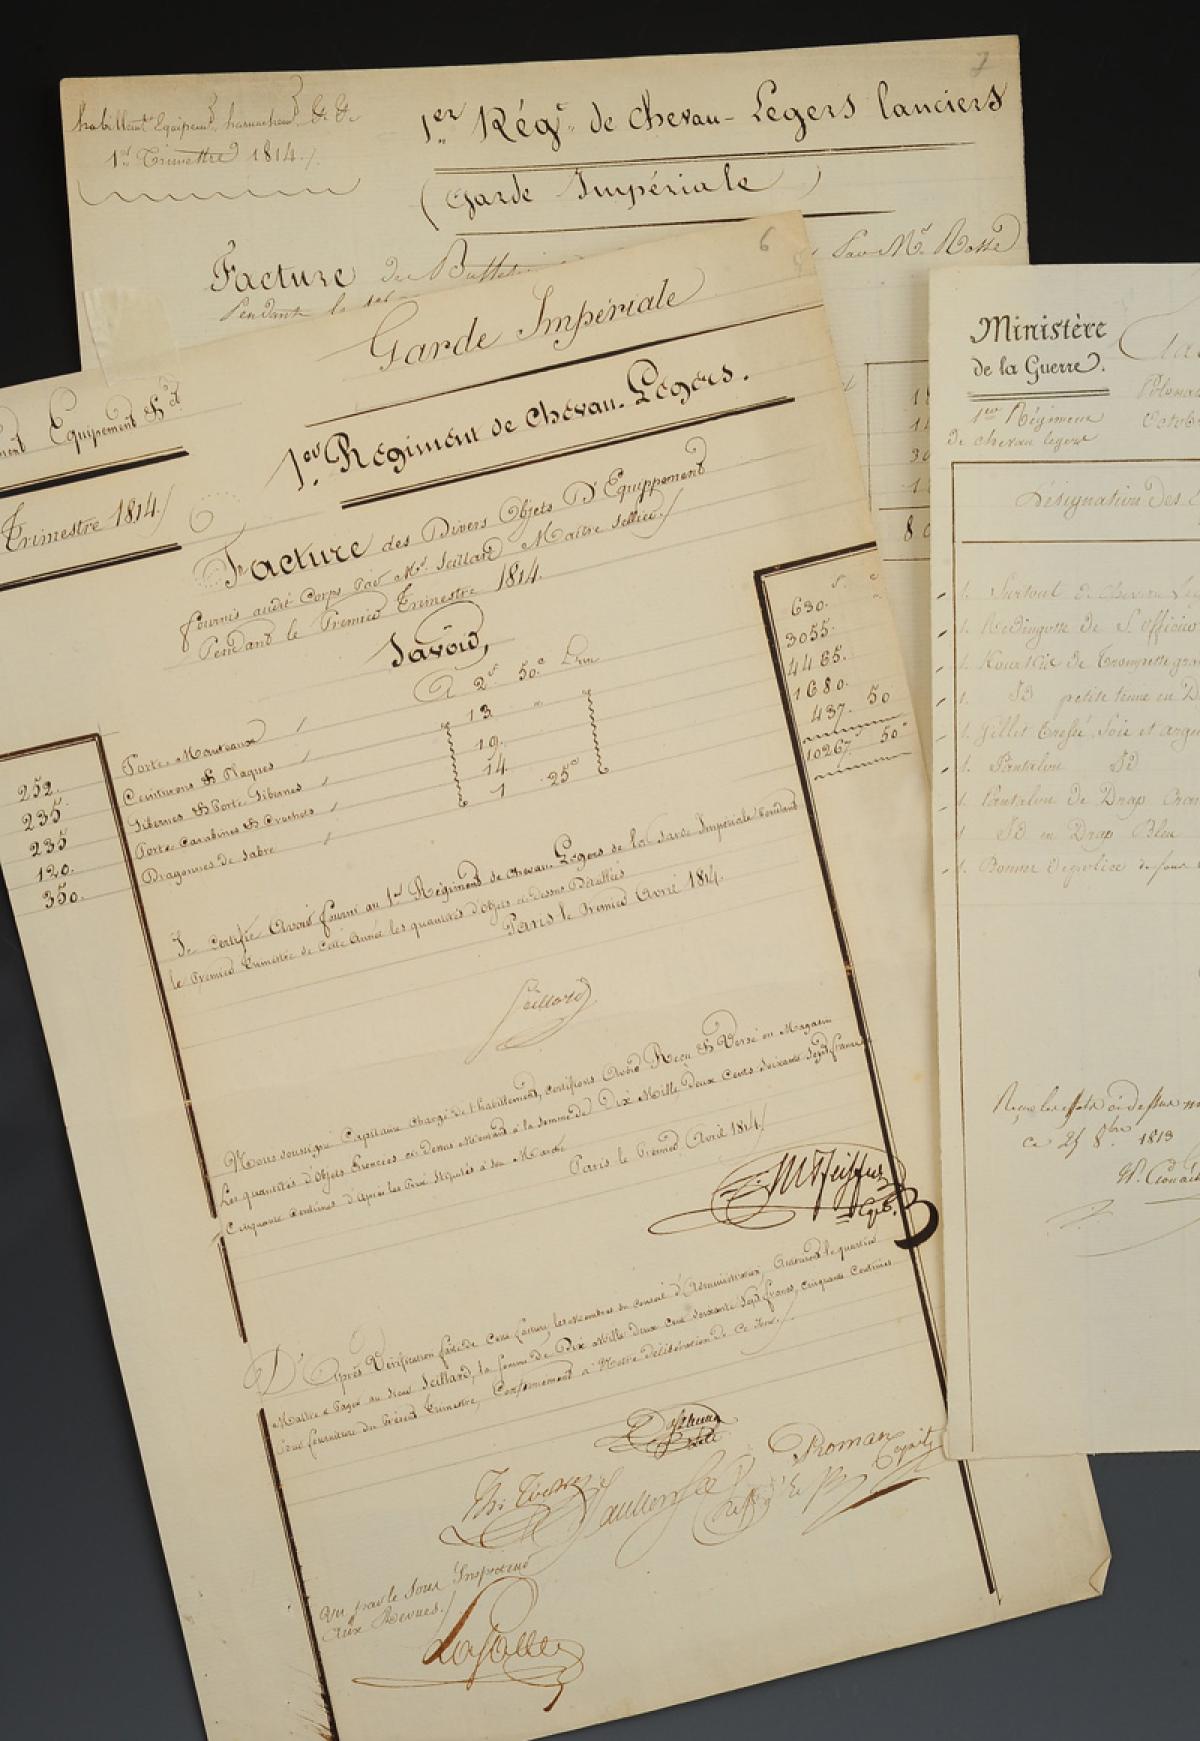 7
1er Rég.t de chevau-Legers lanciers
(Garde Impériale)
habillem.t Equipem.t harnachem.t &.a &.a
1er Trimestre 1814./.
Facture de Par Mr.
Pendant le 1er
6
Garde Impériale
Equipement &.a
1er Régiment de Chevau-Légers.
Trimestre 1814./
Facture des Divers Objets D'Equippement
fournis audit Corps Par Mr. Seillard Maitre Sellier./
Pendant le Premier Trimestre 1814.
Savoir,
252. Porte-Manteaux / à 2f 50c L'un 630.
235. Ceinturons & Plaques / 13 " 3055.
235 Gibernes & Porte-Gibernes / 19. 4465.
120. Porte Carabines & Crochets / 14 1680.
350. Dragonnes de Sabre / 1 25c 437. 50
10267. 50c
Je certifie Avoir fourni au 1er Régiment de chevau-Légers de la Garde Impériale Pendant
le Premier Trimestre de Cette Année les quantités d'objets ci-dessus Détaillés
Paris le Premier Avril 1814.
Seillard
Nous soussigné Capitaine Chargé de l'habillement, certifions Avoir Reçu & Versé en Magasin
Les quantités d'Objets Enoncées ci-dessus Montant à la somme de Dix Mille Deux Cents Soixante Sept francs
Cinquante Centimes d'Après les Prix Stipulés à son Marché
Paris le Premier Avril 1814./
D'Après Vérification faite de Cette facture, les Membres du Conseil d'Administration, Autorisent le quartier
Maitre à Payer au Sieur Seillard, la Somme de Dix Mille deux cent soixante Sept francs, cinquante Centimes
Pour fourniture du Présent Trimestre, Conformément à Notre délibération de Ce Jour./
Roman
Vu par le Sous Inspecteur
Aux Revues./
Lasalle
Ministère
de la Guerre.
1er Régiment
de chevau legers
Désignation des
1. Surtout de Chevau Lég
1. Redingotte de S. officier
1. Kourtka de Trompette gra
1. Id petite tenue en D
1. Gillet Tressé, Soie et argen
1. Pantalon Id
1. Pantalon de Drap Cram
1. Id en Drap Bleu
1. Bonnet de police de fous
Reçu les effets ci dessus
ce 25 8bre 1813